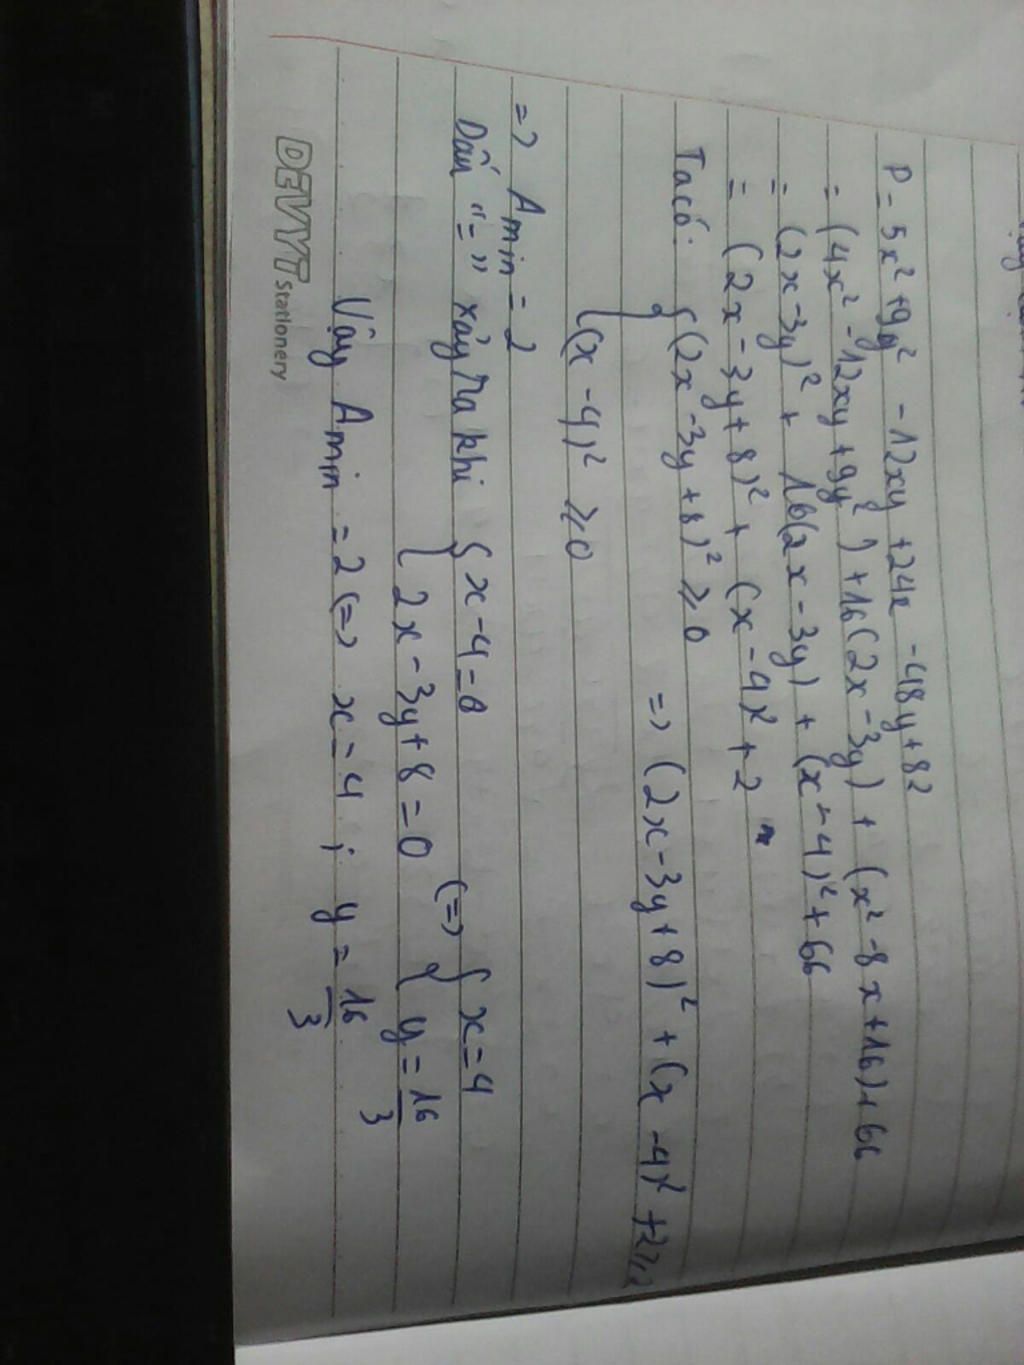 P = 5x² + 9y² - 12xy + 24x - 48y + 82
= (4x² - 12xy + 9y²) + 16(2x - 3y) + (x² - 8x + 16) + 66
= (2x - 3y)² + 16(2x - 3y) + (x - 4)² + 66
= (2x - 3y + 8)² + (x - 4)² + 2
Ta có: { (2x - 3y + 8)² ≥ 0
=> (2x - 3y + 8)² + (x - 4)² + 2 ≥ 2
(x - 4)² ≥ 0
=> Amin = 2
Dấu "=" xảy ra khi { x - 4 = 0 (=> { x = 4
2x - 3y + 8 = 0 y = 16/3
Vậy Amin = 2 (=> x = 4 ; y = 16/3
DEVYT Stationery